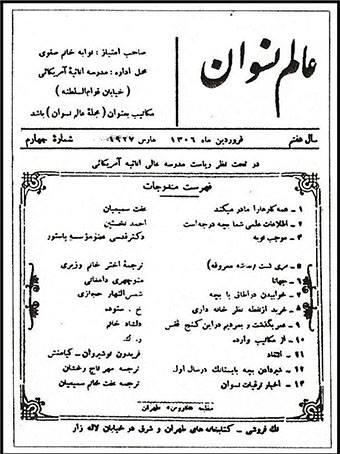 عالم نسوان
صاحب امتیاز: نوابه خانم صفوی
محل اداره: مدرسه اناثیهٔ آمریکائی
(خیابان قوام‌السلطنه)
مکاتیب بعنوان (مجلهٔ عالم نسوان) باشد
سال هفتم فروردین ماه ۱۳۰۶ مارس ۱۹۲۷ شمارهٔ چهارم
در تحت نظر ریاست مدرسه عالی اناثیه آمریکائی
فهرست مندرجات
۱ - همه کارها را مادر میکند عفت سمیعیان
۲ - اطلاعات علمی شما ببچه درجه است احمد نخستین
۳ - موجب نوبه دکتر قدسی عضو مؤسسه پاستور
ترجمهٔ اختر خانم وزیری
۵ - جهانا منوچهری دامغانی
۶ - خوابیدن در اطاقی با بچه شمس‌النهار حجازی
۷ - خرید از نقطه نظر خانه داری خ . ستوده
۸ - عمر بگذشت و بمردیم در این کنج قفس دلشاد خانم
۱۰ - از مکاتیب وارده ر. ک
۱۱ - انتقاد فریدون نوشیروان -
۱۲ - شیر دادن ببچه باپستانک در سال اول ترجمه مهر تاج رخشان
۱۳ - اخبار ترقیات نسوان ترجمه عفت خانم سمیعیان
مطبعه «فاروس» طهران
تک فروشی - کتابخانه های طهران و شرق در خیابان لاله زار